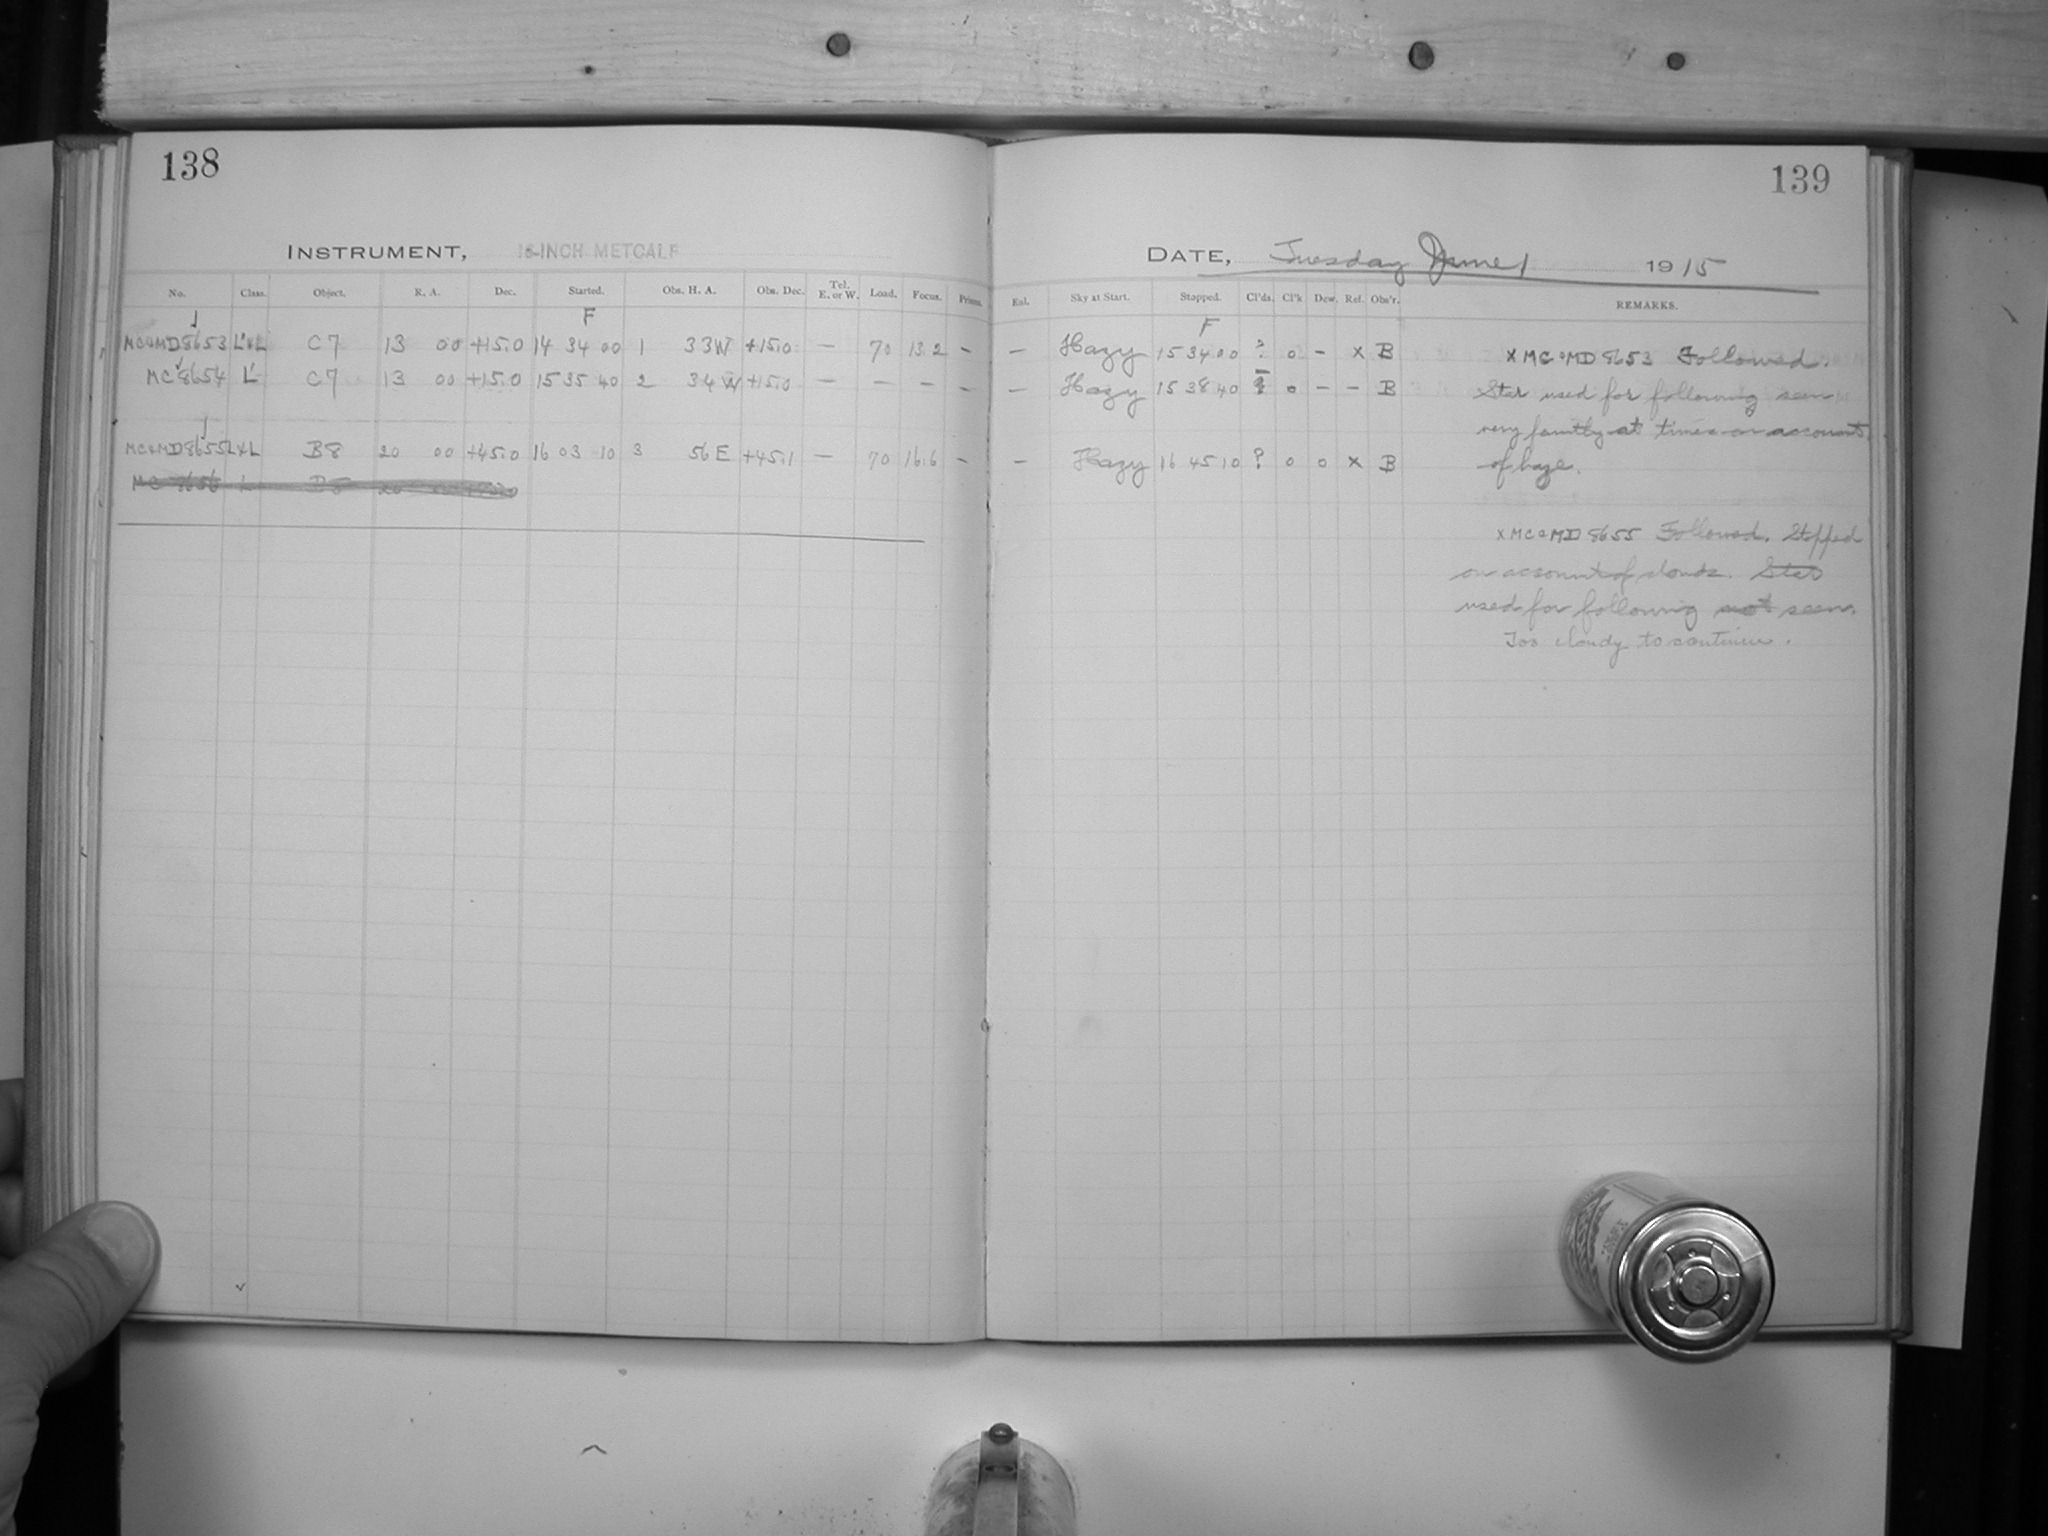 138
139
INSTRUMENT, 16-INCH METCALF
DATE, Tuesday June 1 1915
No. Class. Object. R. A. Dec. Started. Obs. H. A. Obs. Dec. Tel. E. or W. Load. Focus. Prism. Exl. Sky at Start. Stopped. Cl'ds. Cl'k Dew. Ref. Obs'r. REMARKS.
F F
MC&MD8653 L&L C7 13 00 +15.0 14 34 00 1 33W +15.0 – 70 13.2 – – Hazy 15 34 00 ? 0 – x B x MC&MD 8653 Followed.
MC 8654 L C7 13 00 +15.0 15 35 40 2 34 W +15.0 – – – – – Hazy 15 38 40 ? 0 – – B Star used for following seen
very faintly at times on account
MC&MD8655 L&L B8 20 00 +45.0 16 03 10 3 56 E +45.1 – 70 16.6 – – Hazy 16 45 10 ? 0 0 x B of haze.
MC 8656 L B8 20 00
x MC&MD 8655 Followed. Stopped
on account of clouds. Star
used for following not seen.
Too cloudy to continue.